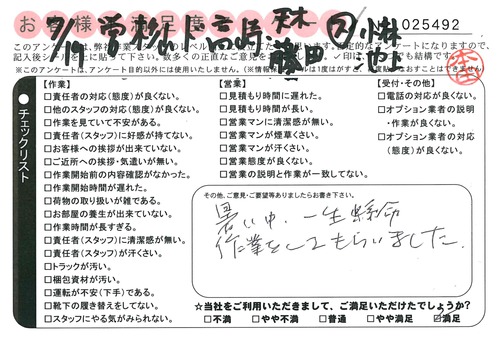 お客様満足度
025492
7/19 営松下高崎 天木 囚 小林
藤田 池上
このアンケートは、弊社作業スタッフのレベル
記入後シールを上に貼って下さい。数多くの正直なご意見を
も結構です。
※このアンケートは、アンケート目的以外には使用いたしません。
チェックリスト
【作業】
□責任者の対応(態度)が良くない。
□他のスタッフの対応(態度)が良くない。
□作業を見ていて不安がある。
□責任者(スタッフ)に好感が持てない。
□お客様への挨拶が出来ていない。
□ご近所への挨拶・気遣いが無い。
□作業開始前の内容確認がなかった。
□作業開始時間が遅れた。
□荷物の取り扱いが雑である。
□お部屋の養生が出来ていない。
□作業時間が長すぎる。
□責任者(スタッフ)に清潔感が無い。
□責任者(スタッフ)が汗くさい。
□トラックが汚い。
□梱包資材が汚い。
□運転が不安(下手)である。
□靴下の履き替えをしてない。
□スタッフにやる気がみられない。
【営業】
□見積もり時間に遅れた。
□見積もり時間が長い。
□営業マンに清潔感が無い。
□営業マンが煙草くさい。
□営業マンが汗くさい。
□営業態度が良くない。
□営業の説明と作業が一致してない。
【受付・その他】
□電話の対応が良くない。
□オプション業者の説明
・作業が良くない。
□オプション業者の対応
(態度)が良くない。
その他、ご意見・ご要望等ありましたらお書き下さい。
暑い中、一生懸命
作業をしてもらいました。
☆当社をご利用いただきまして、ご満足いただけたでしょうか?
□不満 □やや不満 □普通 □やや満足 ☑満足